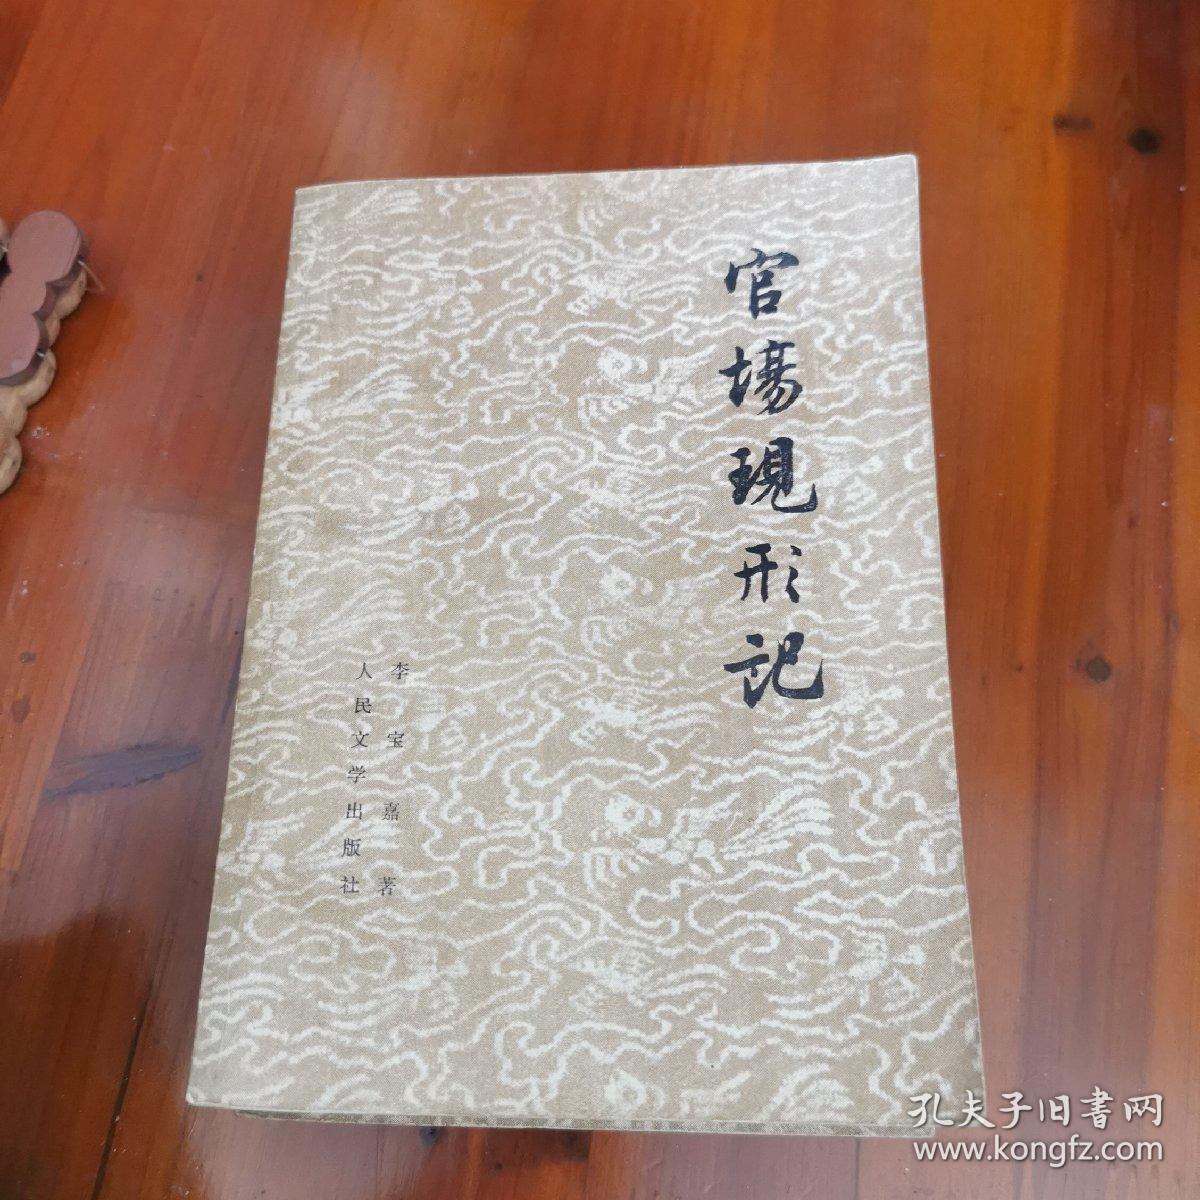 官場現形记
李宝嘉著
人民文学出版社
孔夫子旧書网
www.kongfz.com